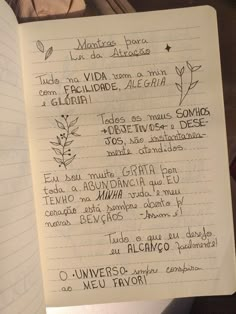 Mantras para
Lei da Atração
Tudo na VIDA vem a mim
com FACILIDADE, ALEGRIA
e GLÓRIA!
Todos os meus SONHOS
+ OBJETIVOS + DESE-
JOS, são instantanea-
mente atendidos.
Eu sou muito GRATA por
toda a ABUNDÂNCIA que EU
TENHO na MINHA vida e meu
coração está sempre aberto p/
novas BENÇÃOS
Tudo o que eu desejo
eu ALCANÇO facilmente!
O UNIVERSO sempre conspira
ao MEU FAVOR!